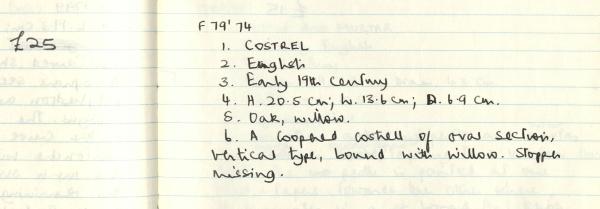 £25
F79'74
1. COSTREL
2. English
3. Early 19th century
4. H. 20.5 cm; W. 13.6 cm; D. 6.9 cm.
5. Oak, willow.
6. A coopered costrell of oval section,
vertical type, bound with willow. Stopper
missing.